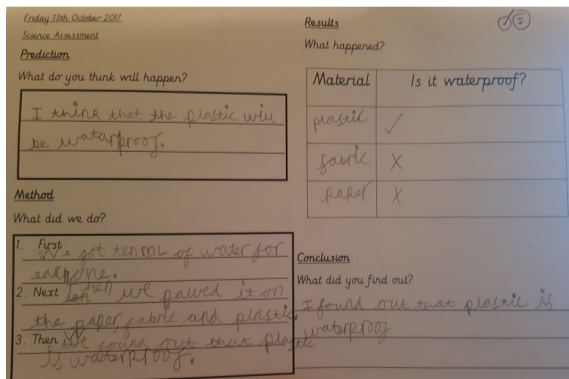 Friday 13th October 2017
Science Assessment
Prediction
What do you think will happen?
I think that the plastic will
be waterproof.
Method
What did we do?
1. First
We got tenml of water for
each one.
2. Next Then we pawed it on
the paper, fabric and plastic
3. Then We found out that plastic
is waterproof.
Results
What happened?
Material Is it waterproof?
plastic ✓
fabric X
paper X
Conclusion
What did you find out?
I found out that plastic is
waterproof